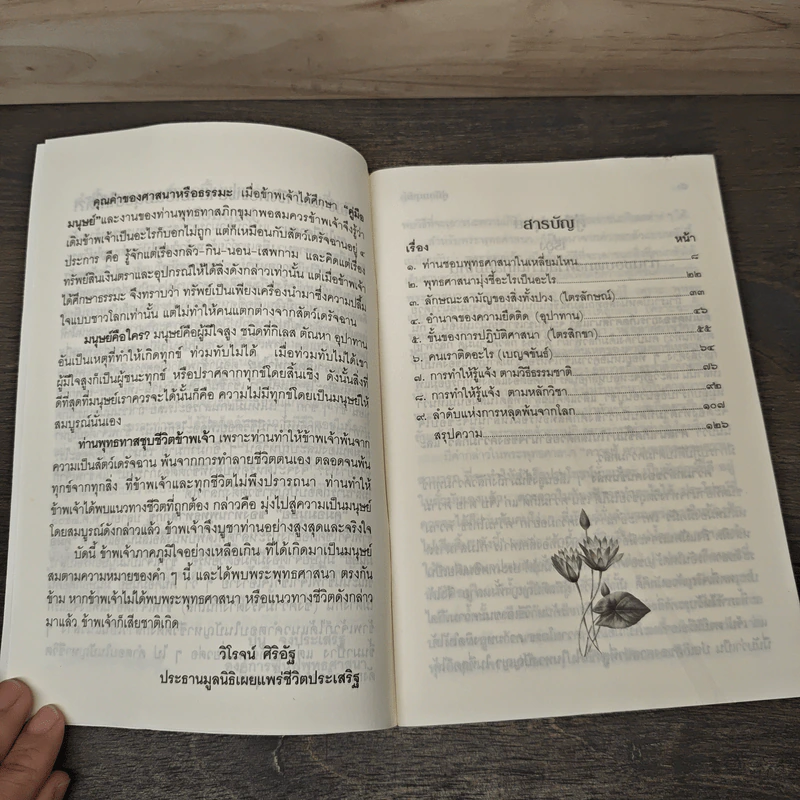 คุณค่าของศาสนาหรือธรรมะ เมื่อข้าพเจ้าได้ศึกษา "คู่มือ
มนุษย์"และงานของท่านพุทธทาสภิกขุมาพอสมควรข้าพเจ้าจึงรู้ว่า
เดิมข้าพเจ้าเป็นอะไรก็บอกไม่ถูก แต่ก็เหมือนกับสัตว์เดรัจฉานอยู่ ๔
ประการ คือ รู้จักแต่เรื่องกลัว-กิน-นอน-เสพกาม และคิดแต่เรื่อง
ทรัพย์สินเงินตราและอุปกรณ์ให้ได้สิ่งดังกล่าวเท่านั้น แต่เมื่อข้าพเจ้า
ได้ศึกษาธรรมะ จึงทราบว่า ทรัพย์เป็นเพียงเครื่องนำมาซึ่งความปลื้ม
ใจแบบชาวโลกเท่านั้น แต่ไม่ทำให้คนแตกต่างจากสัตว์เดรัจฉาน
มนุษย์คือใคร? มนุษย์คือผู้มีใจสูง ชนิดที่กิเลส ตัณหา อุปาทาน
อันเป็นเหตุที่ทำให้เกิดทุกข์ ท่วมทับไม่ได้ เมื่อท่วมทับไม่ได้เขา
ผู้มีใจสูงก็เป็นผู้ชนะทุกข์ หรือปราศจากทุกข์โดยสิ้นเชิง ดังนั้นสิ่งที่
ดีที่สุดที่มนุษย์เราควรจะได้นั้นก็คือ ความไม่มีทุกข์โดยเป็นมนุษย์ให้
สมบูรณ์นั่นเอง
ท่านพุทธทาสชุบชีวิตข้าพเจ้า เพราะท่านทำให้ข้าพเจ้าพ้นจาก
ความเป็นสัตว์เดรัจฉาน พ้นจากการทำลายชีวิตตนเอง ตลอดจนพ้น
ทุกข์จากทุกสิ่ง ที่ข้าพเจ้าและทุกชีวิตไม่พึงปรารถนา ท่านทำให้
ข้าพเจ้าได้พบแนวทางชีวิตที่ถูกต้อง กล่าวคือ มุ่งไปสู่ความเป็นมนุษย์
โดยสมบูรณ์ดังกล่าวแล้ว ข้าพเจ้าจึงบูชาท่านอย่างสูงสุดและจริงใจ
บัดนี้ ข้าพเจ้าภาคภูมิใจอย่างเหลือเกิน ที่ได้เกิดมาเป็นมนุษย์
สมตามความหมายของคำ ๆ นี้ และได้พบพระพุทธศาสนา ตรงกัน
ข้าม หากข้าพเจ้าไม่ได้พบพระพุทธศาสนา หรือแนวทางชีวิตดังกล่าว
มาแล้ว ข้าพเจ้าก็เสียชาติเกิด
วิโรจน์ ศิริอัฐ
ประธานมูลนิธิเผยแพร่ชีวิตประเสริฐ
สารบัญ
เรื่อง หน้า
๑. ท่านชอบพุทธศาสนาในเหลี่ยมไหน ๘
๒. พุทธศาสนามุ่งชี้อะไรเป็นอะไร ๒๒
๓. ลักษณะสามัญของสิ่งทั้งปวง (ไตรลักษณ์) ๓๓
๔. อำนาจของความยึดติด (อุปาทาน) ๔๖
๕. ขั้นของการปฏิบัติศาสนา (ไตรสิกขา) ๕๕
๖. คนเราติดอะไร (เบญจขันธ์) ๖๔
๗. การทำให้รู้แจ้ง ตามวิธีธรรมชาติ ๗๖
๘. การทำให้รู้แจ้ง ตามหลักวิชา ๙๒
๙. ลำดับแห่งการหลุดพ้นจากโลก ๑๐๗
สรุปความ ๑๒๖